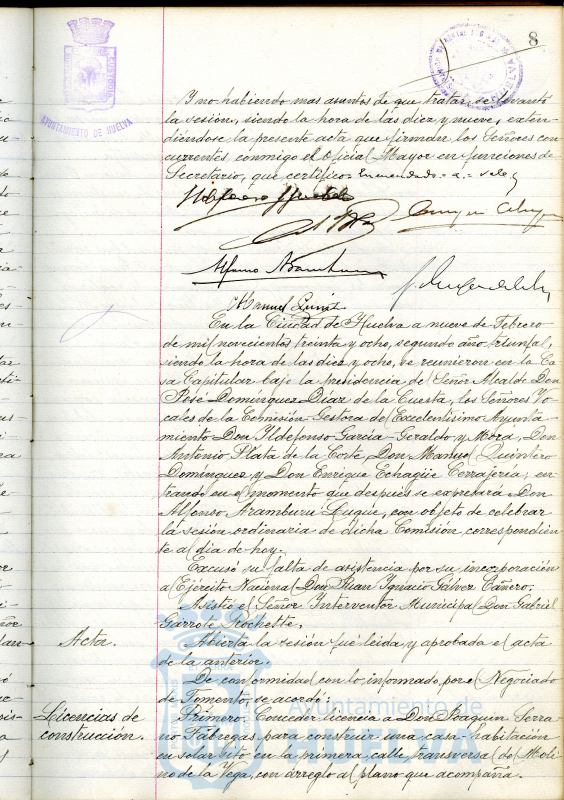 8
AYUNTAMIENTO DE HUELVA
Y no habiendo mas asuntos de que tratar, se levantó
la sesión, siendo la hora de las diez y nueve, exten-
diéndose la presente acta que firman los Señores con-
currentes conmigo el Oficial Mayor en funciones de
Secretario, que certifico. Enmendado = a = vale,
Manuel Quint
En la Ciudad de Huelva a nueve de Febrero
de mil novecientos treinta y ocho, segundo año triunfal,
siendo la hora de las diez y ocho, se reunieron en la Ca-
sa Capitular bajo la presidencia del Señor Alcalde Don
José Dominguez Díaz de la Cuesta, los Señores Vo-
cales de la Comisión Gestora del Excelentísimo Ayunta-
miento Don Ildefonso Garcia-Geraldo y Mora, Don
Antonio Plata de la Corte, Don Manuel Quintero
Dominguez y Don Enrique Echagüe Cerrajería, en-
trando en el momento que después se expresará Don
Alfonso Aramburu Luque, con objeto de celebrar
la sesión ordinaria de dicha Comisión correspondien-
te al día de hoy.
Excusó su falta de asistencia por su incorporación
al Ejército Nacional Don Juan Ignacio Gálvez Cañero.
Asistió el Señor Interventor Municipal Don Gabriel
Garrote Rocheste.
Acta. Abierta la sesión fué leida y aprobada el acta
de la anterior.
De conformidad con lo informado por el Negociado
de Fomento, se acordó:
Licencias de Primero. Conceder licencia a Don Joaquin Serra-
construcción. no Fábregas para construir una casa-habitación
en solar sito en la primera calle transversal del Moli-
no de la Vega, con arreglo al plano que acompaña.
Ayuntamiento de
HUELVA